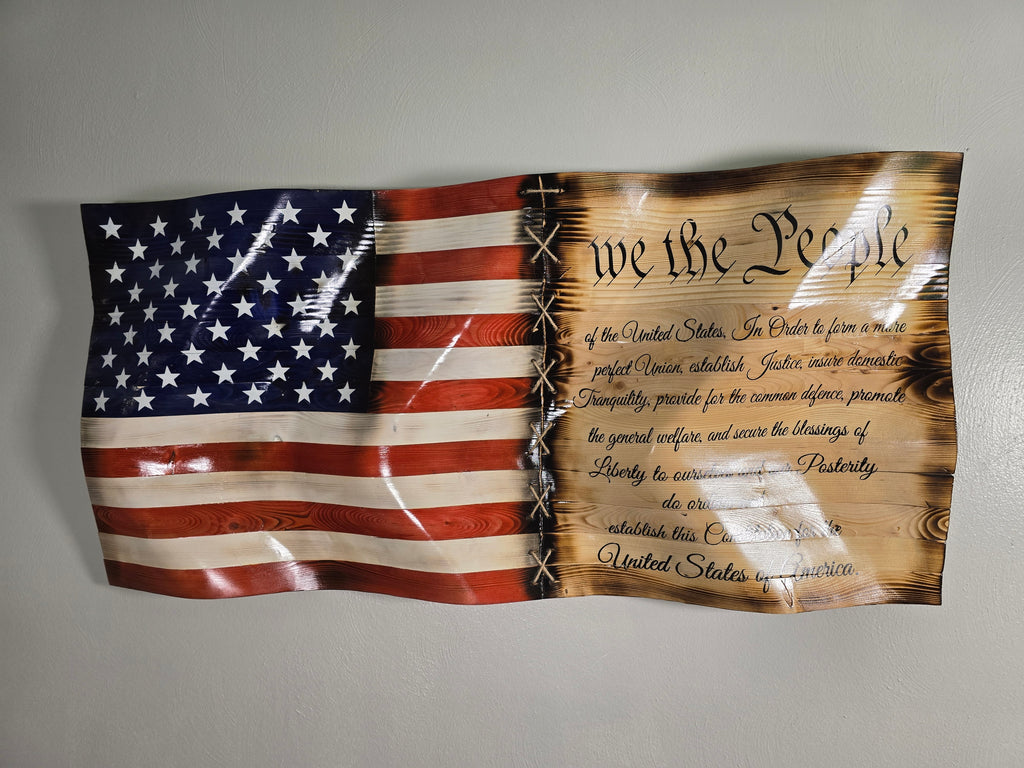 we the People
of the United States, In Order to form a more
perfect Union, establish Justice, insure domestic
Tranquility, provide for the common defence, promote
the general welfare, and secure the blessings of
Liberty to Posterity
do
establish this
United States of America.